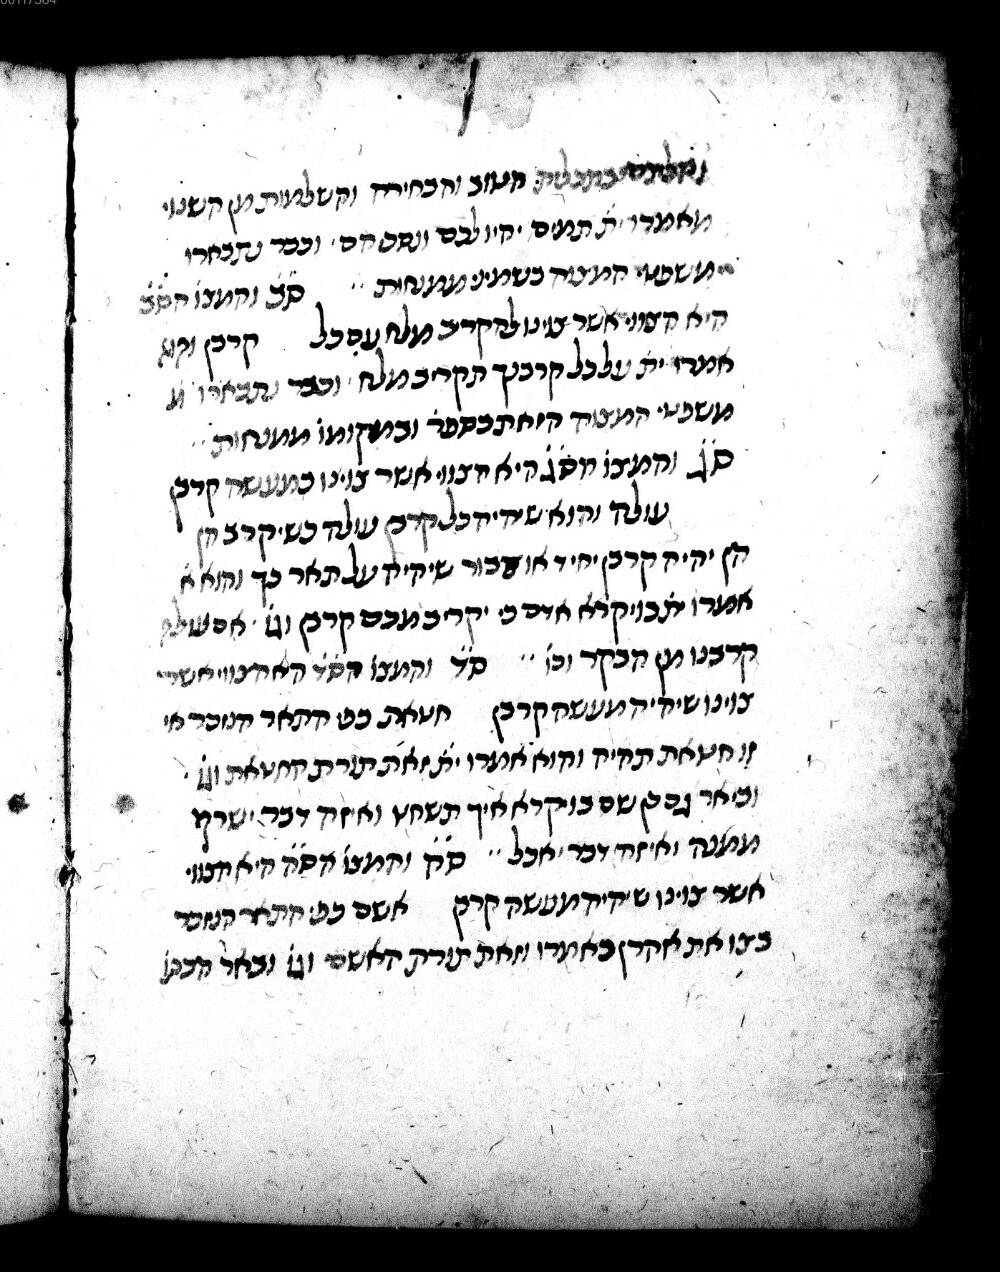 בתכלית הטוב והבחירה והשלמות מן השנוי
מאמרו ית תמים יהיו לכם ונסכיהם וכבר נתבארו
משפטי המצוה בשמיני ממנחות סב והמצו הסב
היא הצווי אשר צוינו להקריב מלח עם כל קרבן והוא
אמרו ית על כל קרבנך תקריב מלח וכבר נתבארו מ
משפטי המצוה הזאת בספר ובמקומו ממנחות
סג והמצו הסג היא הצווי אשר צוינו במעשה קרבן
עולה והוא שיהיה כל קרבן עולה כשיקרב הן
הן יהיה קרבן יחיד או צבור שיהיה על תאר כך והוא א
אמרו ית בויקרא אדם כי יקריב מכם קרבן וגו אם עולה
קרבנו מן הבקר וכו סד והמצו הסד היא הצווי אשר
צוינו שיהיה מעשה קרבן חטאת כפי התאר הנזכר אי
זו חטאת תהיה והוא אמרו ית זאת תורת החטאת וגו
וביאר גם כן שם בויקרא איך תשחט ואיזה דבר ישרף
ממנה ואיזה דבר יאכל סה והמצו הסה היא הצווי
אשר צוינו שיהיה מעשה קרבן אשם כפי התאר הנזכר
בצו את אהרן באמרו וזאת תורת האשם וגו ובאר הכתו